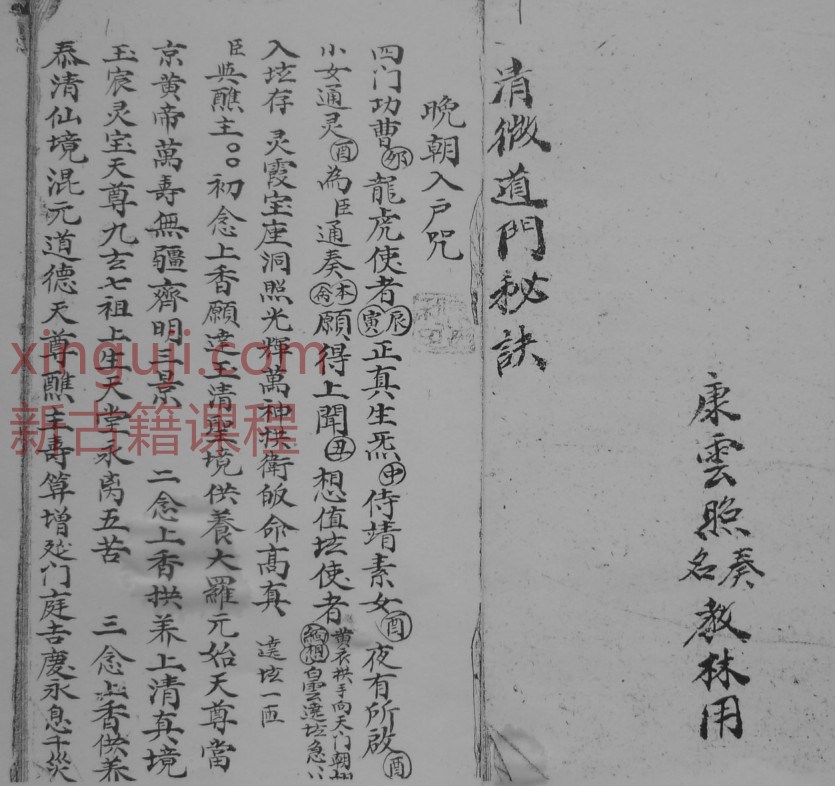 康雲照奏名教林用
清微道門秘訣
晚朝入戶咒
四门功曹卯龍虎使者辰寅正真生炁申侍靖素女酉夜有所啟酉
小女通灵酉為臣通奏本命願得上聞丑想值坛使者黄衣拱手向天门朝
白雲遶坛急
入坛存灵霞宝座洞照光輝萬神拱衛皈命高真 遶坛一匝
臣與醮主〇〇初念上香願達玉清聖境供養大羅元始天尊當
京黄帝萬壽無疆齊明三景 二念上香拱养上清真境
玉宸灵宝天尊九玄七祖上生天堂永离五苦 三念上香供养
泰清仙境混元道德天尊醮主壽算增延门庭吉慶永息千災
xinguji.com
新古籍课程